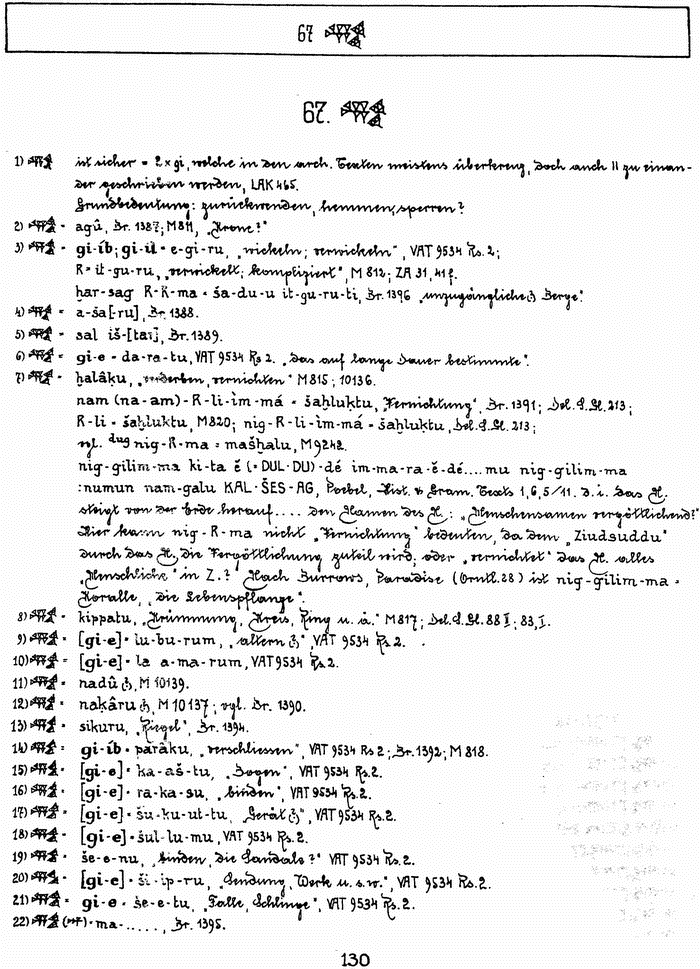 67 𒄃
67. 𒄃
1) 𒄃 ist sicher = 2 x gi, welche in den arch. Texten meistens überkreuz, doch auch II zu einan-
der geschrieben werden, LAK 465.
Grundbedeutung: zurückwenden, hemmen, sperren?
2) 𒄃 = agû, Br. 1387; M 811, „Krone?"
3) 𒄃 = gi-íb; gi-il = e-gi-ru, „wickeln; verwickeln", VAT 9534 Rs. 2;
R = it-gu-ru, „verwickelt; kompliziert", M 812; ZA 31, 41f.
ḫar-sag R-R-ma = ša-du-u it-gu-ru-ti, Br. 1396 „unzugängliche Berge".
4) 𒄃 = a-ša[-ru], Br. 1388.
5) 𒄃 = sal iš-[tar], Br. 1389.
6) 𒄃 = gi-e = da-ra-tu, VAT 9534 Rs 2. „das auf lange Dauer bestimmte".
7) 𒄃 = ḫalâḳu, „verderben, vernichten" M 815; 10136.
nam (na-am)-R-li-ìm-má = šaḫluḳtu, „Vernichtung", Br. 1391; Del. S. Gl. 213;
R-li = šaḫluḳtu, M 820; nig-R-li-ìm-má = šaḫluḳtu, Del. S. Gl. 213;
vgl. dug nig-R-ma = mašḫalu, M 9242.
nig-gilim-ma ki-ta ĕ (= DUL-DU)-dé im-ma-ra-ĕ-dé.... mu nig-gilim-ma
:numun nam-galu KAL-ŠES-AG, Poebel, Hist. & Gram. Texts 1, 6, 5/11. d. i. das N.
steigt von der Erde herauf.... den Namen des N.: „Menschensamen vergöttlichend?"
Hier kann nig-R-ma nicht „Vernichtung" bedeuten, da dem „Ziudsuddu"
durch das N. die Vergöttlichung zuteil wird; oder „vernichtet" das N. alles
„Menschliche" in Z.? Nach Burrows, Paradise (Orntl. 28) ist nig-gilim-ma =
Koralle, „die Lebenspflanze".
8) 𒄃 = kippatu, „Krümmung, Kreis, Ring u. ä." M 817; Del. S. Gl. 88 I; 83, I.
9) 𒄃 = [gi-e] = lu-bu-rum, „altern", VAT 9534 Rs 2.
10) 𒄃 = [gi-e] = la a-ma-rum, VAT 9534 Rs 2.
11) 𒄃 = nadû, M 10139.
12) 𒄃 = naḳâru, M 10137; vgl. Br. 1390.
13) 𒄃 = sikuru, „Riegel", Br. 1394.
14) 𒄃 = gi-íb = parâku, „verschliessen", VAT 9534 Rs 2; Br. 1392; M 818.
15) 𒄃 = [gi-e] = ka-aš-tu, „Bogen", VAT 9534 Rs. 2.
16) 𒄃 = [gi-e] = ra-ka-su, „binden", VAT 9534 Rs. 2.
17) 𒄃 = [gi-e] = šu-ku-ut-tu, „Gerät", VAT 9534 Rs. 2.
18) 𒄃 = [gi-e] = šul-lu-mu, VAT 9534 Rs. 2.
19) 𒄃 = še-e-nu, „binden, die Sandale?" VAT 9534 Rs. 2.
20) 𒄃 = [gi-e] = ši-ip-ru, „Sendung, Werk u. s. w.", VAT 9534 Rs. 2.
21) 𒄃 = gi-e = še-e-tu, „Falle, Schlinge", VAT 9534 Rs. 2.
22) 𒄃 = ma-....., Br. 1395.
130